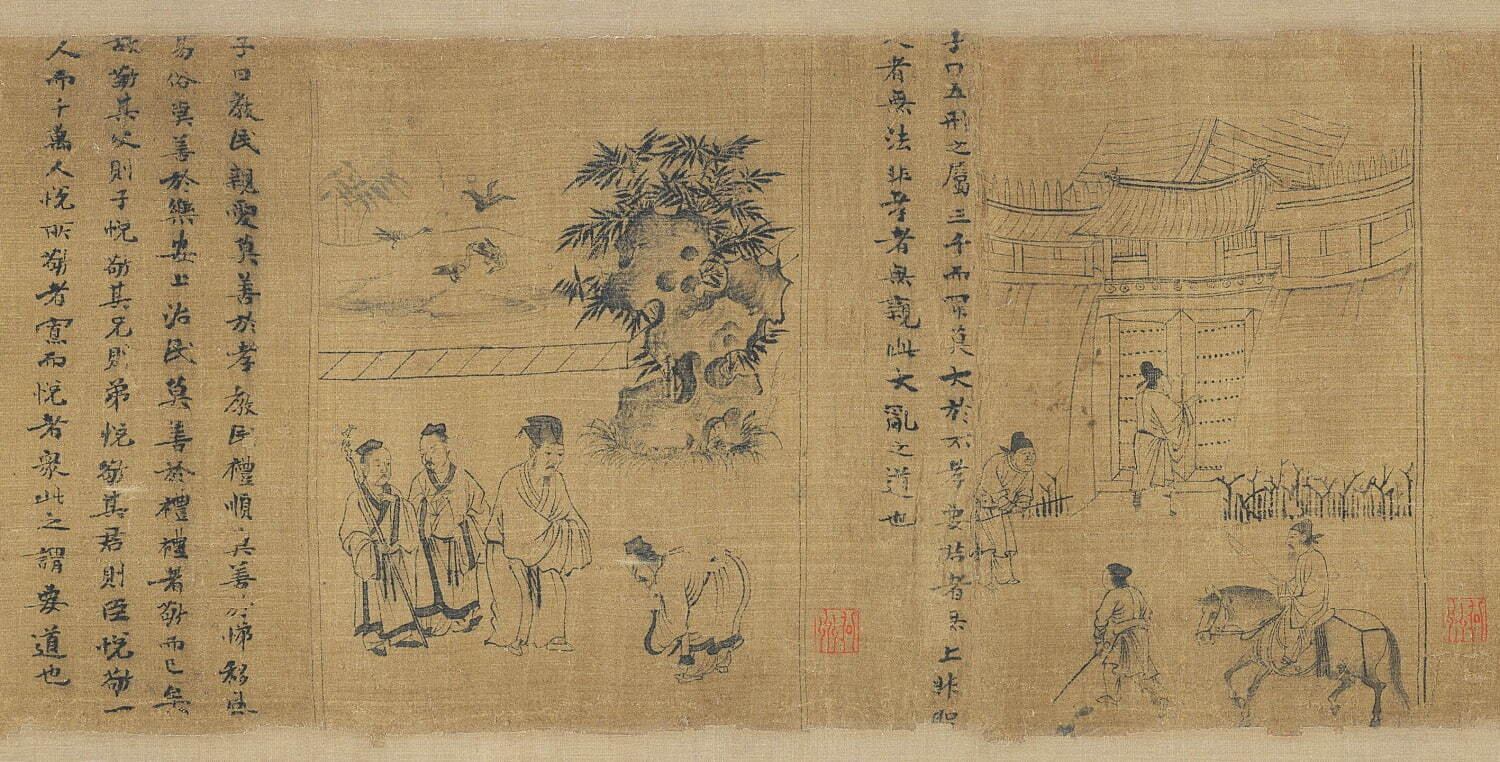 子曰五刑之屬三千而罪莫大於不孝要君者無上非聖
人者無法非孝者無親此大亂之道也
子曰教民親愛莫善於孝教民禮順莫善於悌移風
易俗莫善於樂安上治民莫善於禮禮者敬而已矣
故敬其父則子悅敬其兄則弟悅敬其君則臣悅敬一
人而千萬人悅所敬者寡而悅者衆此之謂要道也